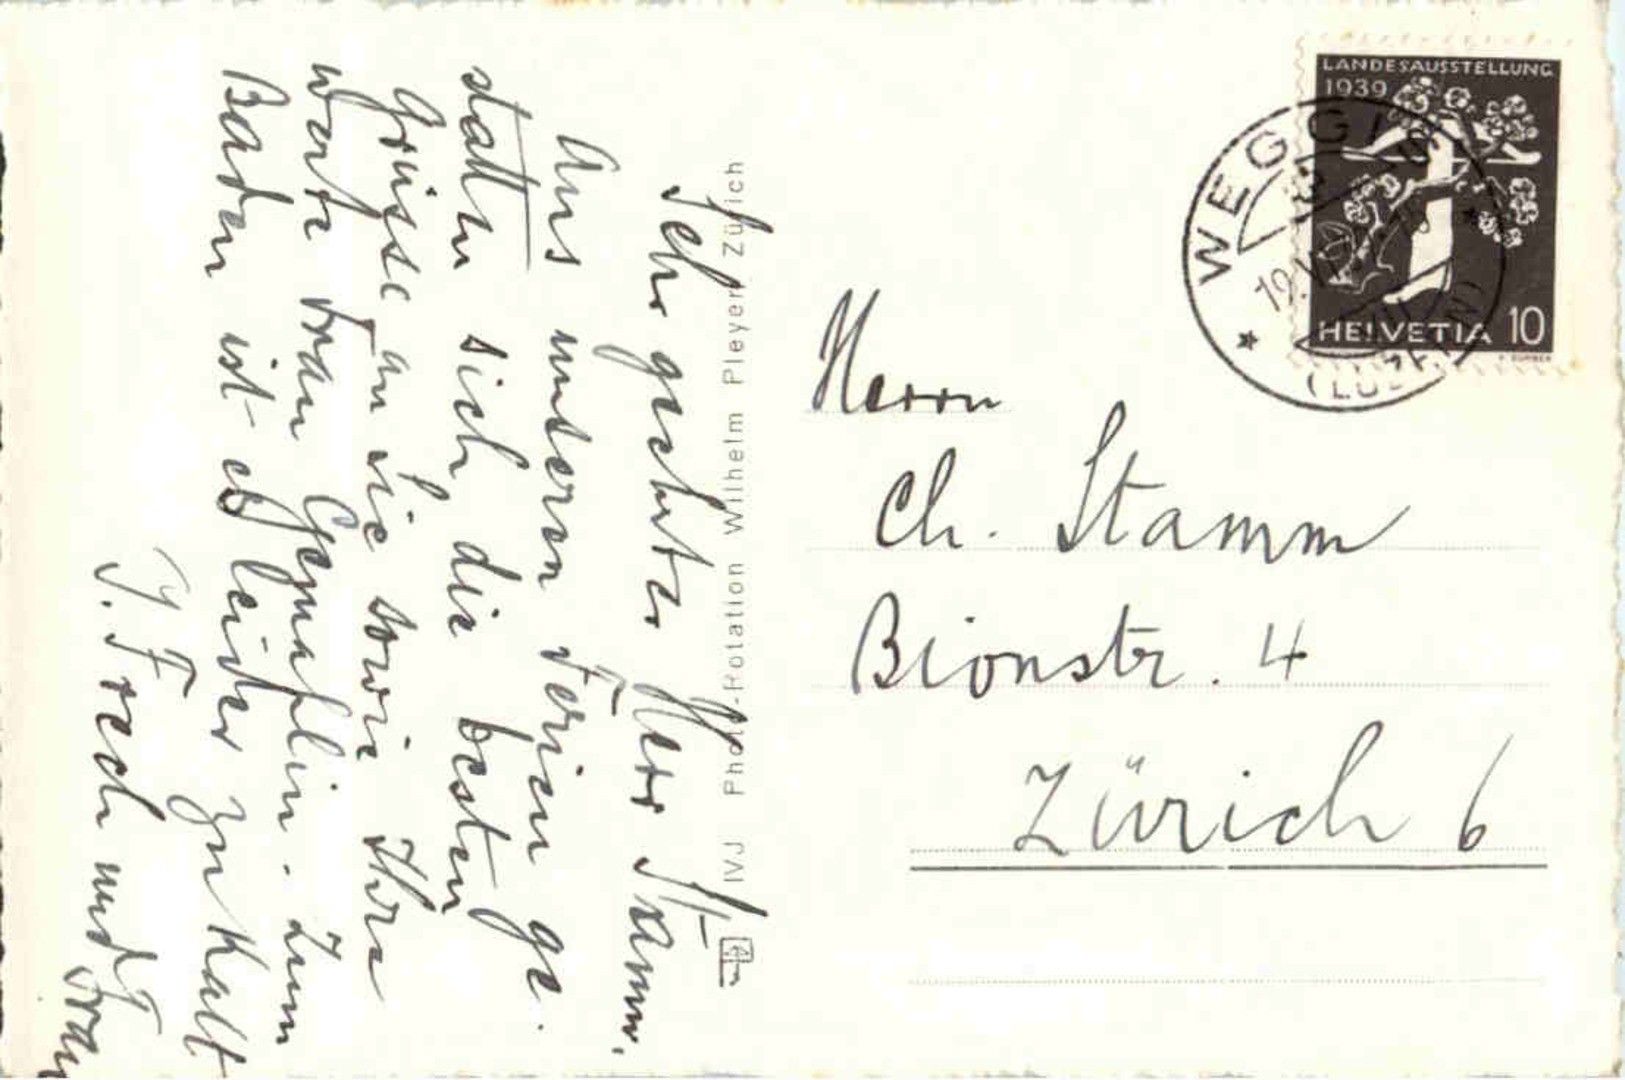 Sehr geehrter Herr Stamm.
Aus unseren Ferien ge-
statten sich die besten
Grüsse an Sie sowie Ihre
werte Frau Gemahlin. Zum
Baden ist es leider zu kalt
J. Frech und Frau
IVJ Photo-Rotation Wilhelm Pleyer. Zürich
LANDESAUSSTELLUNG
1939
HELVETIA 10
WEGGIS
(LUZERN)
Herrn
Ch. Stamm
Bionstr. 4
Zürich 6